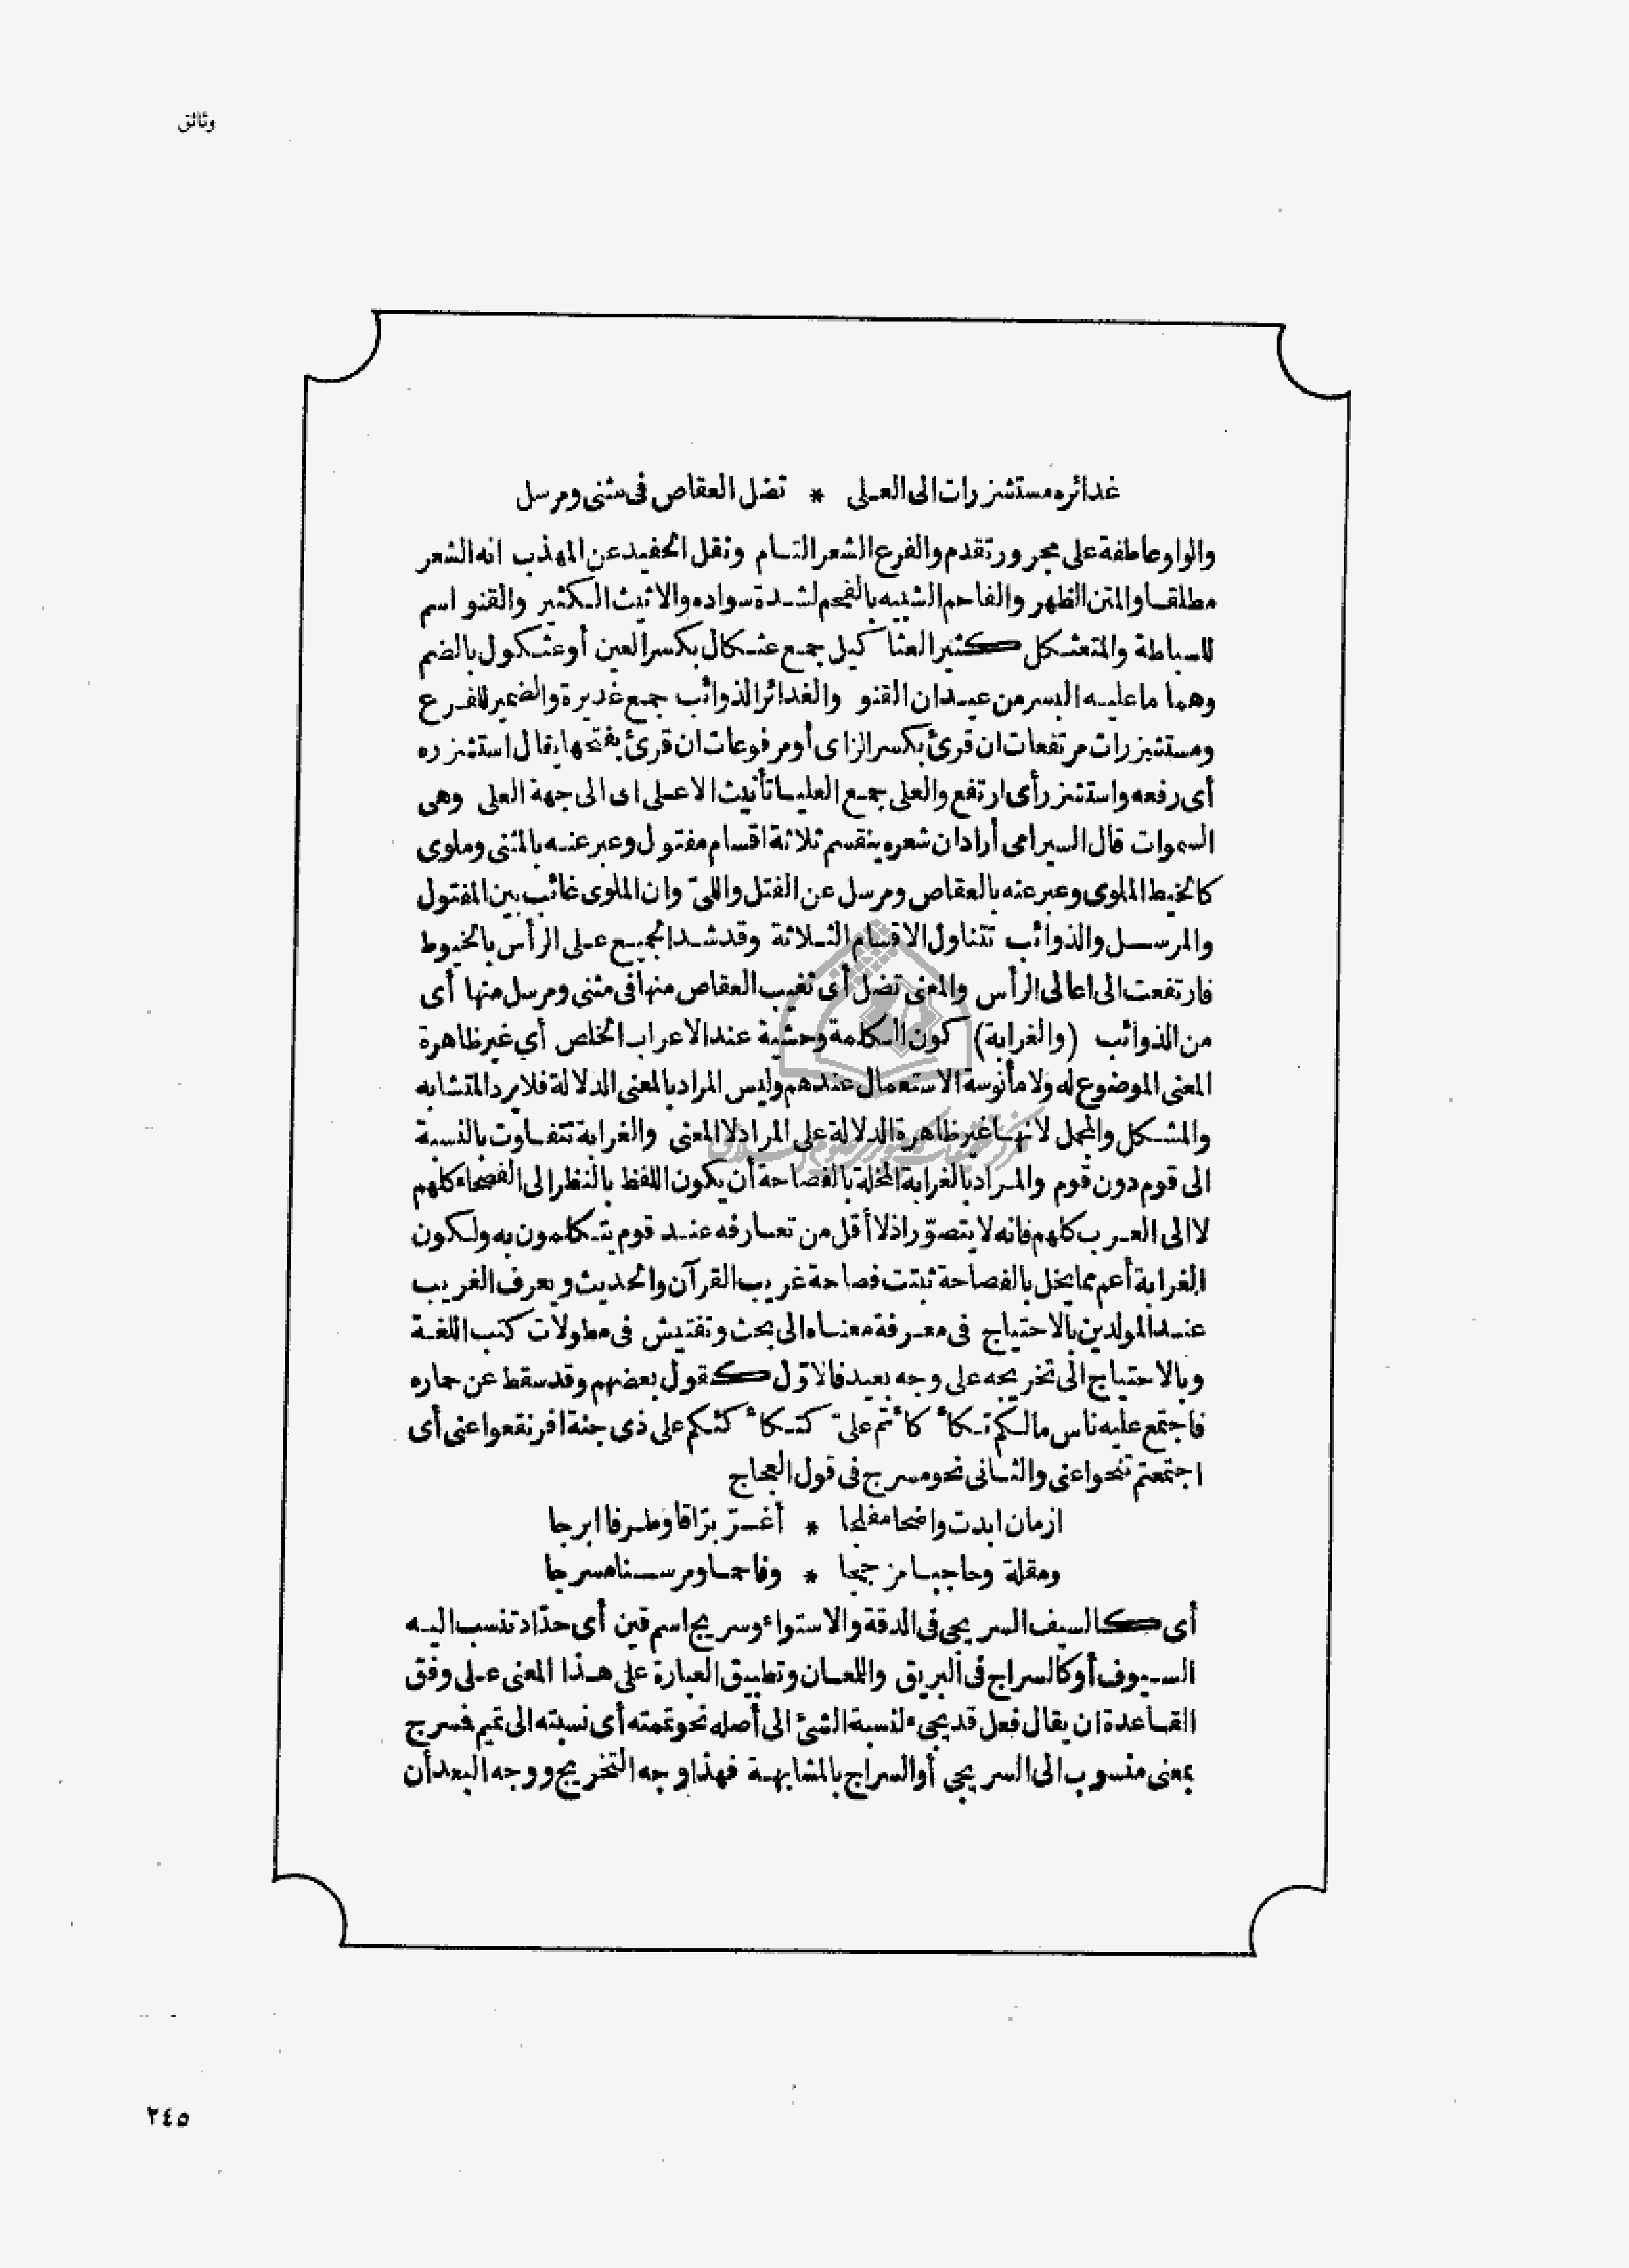 وثائق
غدائره مستشزرات الى العلى * تضل العقاص فى مثنى ومرسل
والواو عاطفة على مجرور تقدم والفرع الشعر التام ونقل الحفيد عن المهذب انه الشعر
مطلقا والمتن الظهر والفاحم الشبيه بالفحم لشدة سواده والاثيث الكثير والقنو اسم
للسباطة والمتعثكل كثير العثاكيل جمع عثكال بكسر العين أو عثكول بالضم
وهما ما عليه البسر من عيدان القنو والغدائر الذوائب جمع غديرة والضمير للفرع
ومستشزرات مرتفعات ان قرئ بكسر الزاى أو مرفوعات ان قرئ بفتحها يقال استشزره
أى رفعه واستشزر أى ارتفع والعلى جمع العليا تأنيث الاعلى اى الى جهة العلى وهى
السموات قال السيرامى أراد ان شعره ينقسم ثلاثة اقسام مفتول وعبر عنه بالمثنى وملوى
كالخيط الملوى وعبر عنه بالعقاص ومرسل عن الفتل واللىّ وان الملوى غائب بين المفتول
والمرسل والذوائب تتناول الاقسام الثلاثة وقد شد الجميع على الرأس بالخيوط
فارتفعت الى اعالى الرأس والمعنى تضل أى تغيب العقاص منها فى مثنى ومرسل منها أى
من الذوائب (والغرابة) كون الكلمة وحشية عند الاعراب الخلص أي غير ظاهرة
المعنى الموضوع له ولا مأنوسة الاستعمال عندهم وليس المراد بالمعنى الدلالة فلا يرد المتشابه
والمشكل والمجمل لانها غير ظاهرة الدلالة على المراد لا المعنى والغرابة تتفاوت بالنسبة
الى قوم دون قوم والمراد بالغرابة المخلة بالفصاحة أن يكون اللفظ بالنظر الى الفصحاء كلهم
لا الى العرب كلهم فانه لا يتصوّر اذ لا أقل من تعارفه عند قوم يتكلمون به ولكون
الغرابة أعم مما يخل بالفصاحة ثبتت فصاحة غريب القرآن والحديث ويعرف الغريب
عند المولدين بالاحتياج فى معرفة معناه الى بحث وتفتيش فى مطولات كتب اللغة
وبالاحتياج الى تخريجه على وجه بعيد فالاوّل كقول بعضهم وقد سقط عن حماره
فاجتمع عليه ناس مالكم تكأ كأتم علىّ كتكأ كئكم على ذى جنة افرنقعوا عنى أى
اجتمعتم تنحوا عنى والثانى نحو مسرج فى قول العجاج
ازمان ابدت واضحا مفلجا * أغرّ برّاقا وطرفا ابرجا
ومقلة وحاجبا مزججا * وفاحما ومرسنا مسرجا
أى كالسيف السريجى فى الدقة والاستواء وسريج اسم قين أى حدّاد تنسب اليه
السيوف أو كالسراج فى البريق واللمعان وتطبيق العبارة على هذا المعنى على وفق
القاعدة ان يقال فعل قد يجىء لنسبة الشئ الى أصله نحو تممته أى نسبته الى تميم فسرج
بمعنى منسوب الى السريجي أو السراج بالمشابهة فهذا وجه التخريج ووجه البعد أن
٢٤٥